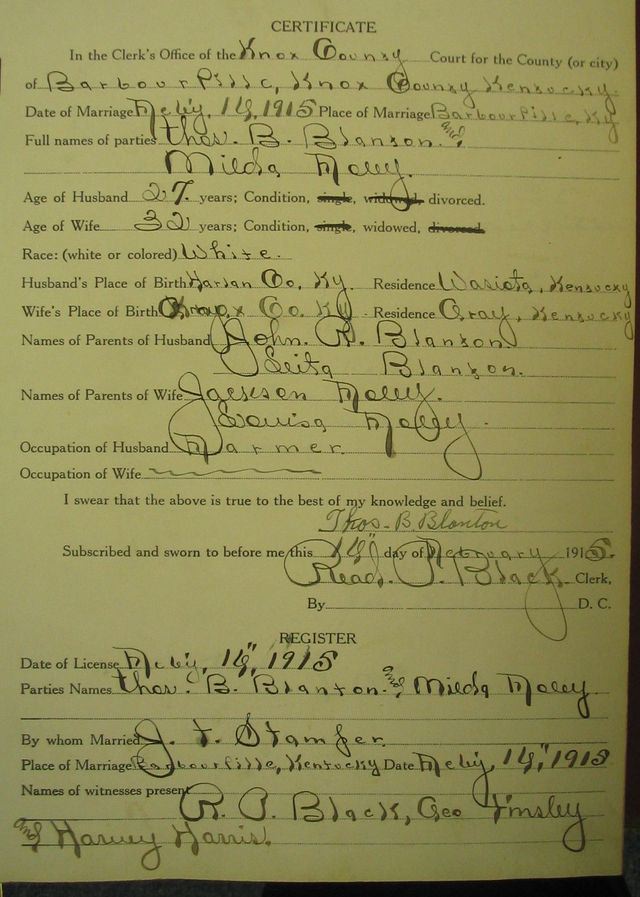 CERTIFICATE
In the Clerk's Office of the Knox County Court for the County (or city)
of Barbourville, Knox County Kentucky.
Date of Marriage Feby, 14, 1915 Place of Marriage Barbourville, Ky
Full names of parties Thos. B. Blanton. and
Milda Foley.
Age of Husband 27. years; Condition, single, widowed, divorced.
Age of Wife 32 years; Condition, single, widowed, divorced.
Race: (white or colored) White.
Husband's Place of Birth Harlan Co, Ky. Residence Wasiota, Kentucky
Wife's Place of Birth Knox Co. Ky. Residence Gray, Kentucky
Names of Parents of Husband John. R. Blanton
Blanton.
Names of Parents of Wife Jackson Foley.
Louisa Foley.
Occupation of Husband Farmer.
Occupation of Wife
I swear that the above is true to the best of my knowledge and belief.
Thos. B. Blanton
Subscribed and sworn to before me this 14" day of February 1915.
Read. P. Black Clerk,
By D. C.
REGISTER
Date of License Feby, 14", 1915
Parties Names Thos. B. Blanton. and Milda Foley.
By whom Married J. T. Stamper.
Place of Marriage Barbourville, Kentucky Date Feby, 14", 1915
Names of witnesses present
R. P. Black, Geo Tinsley
and Harvey Harris.